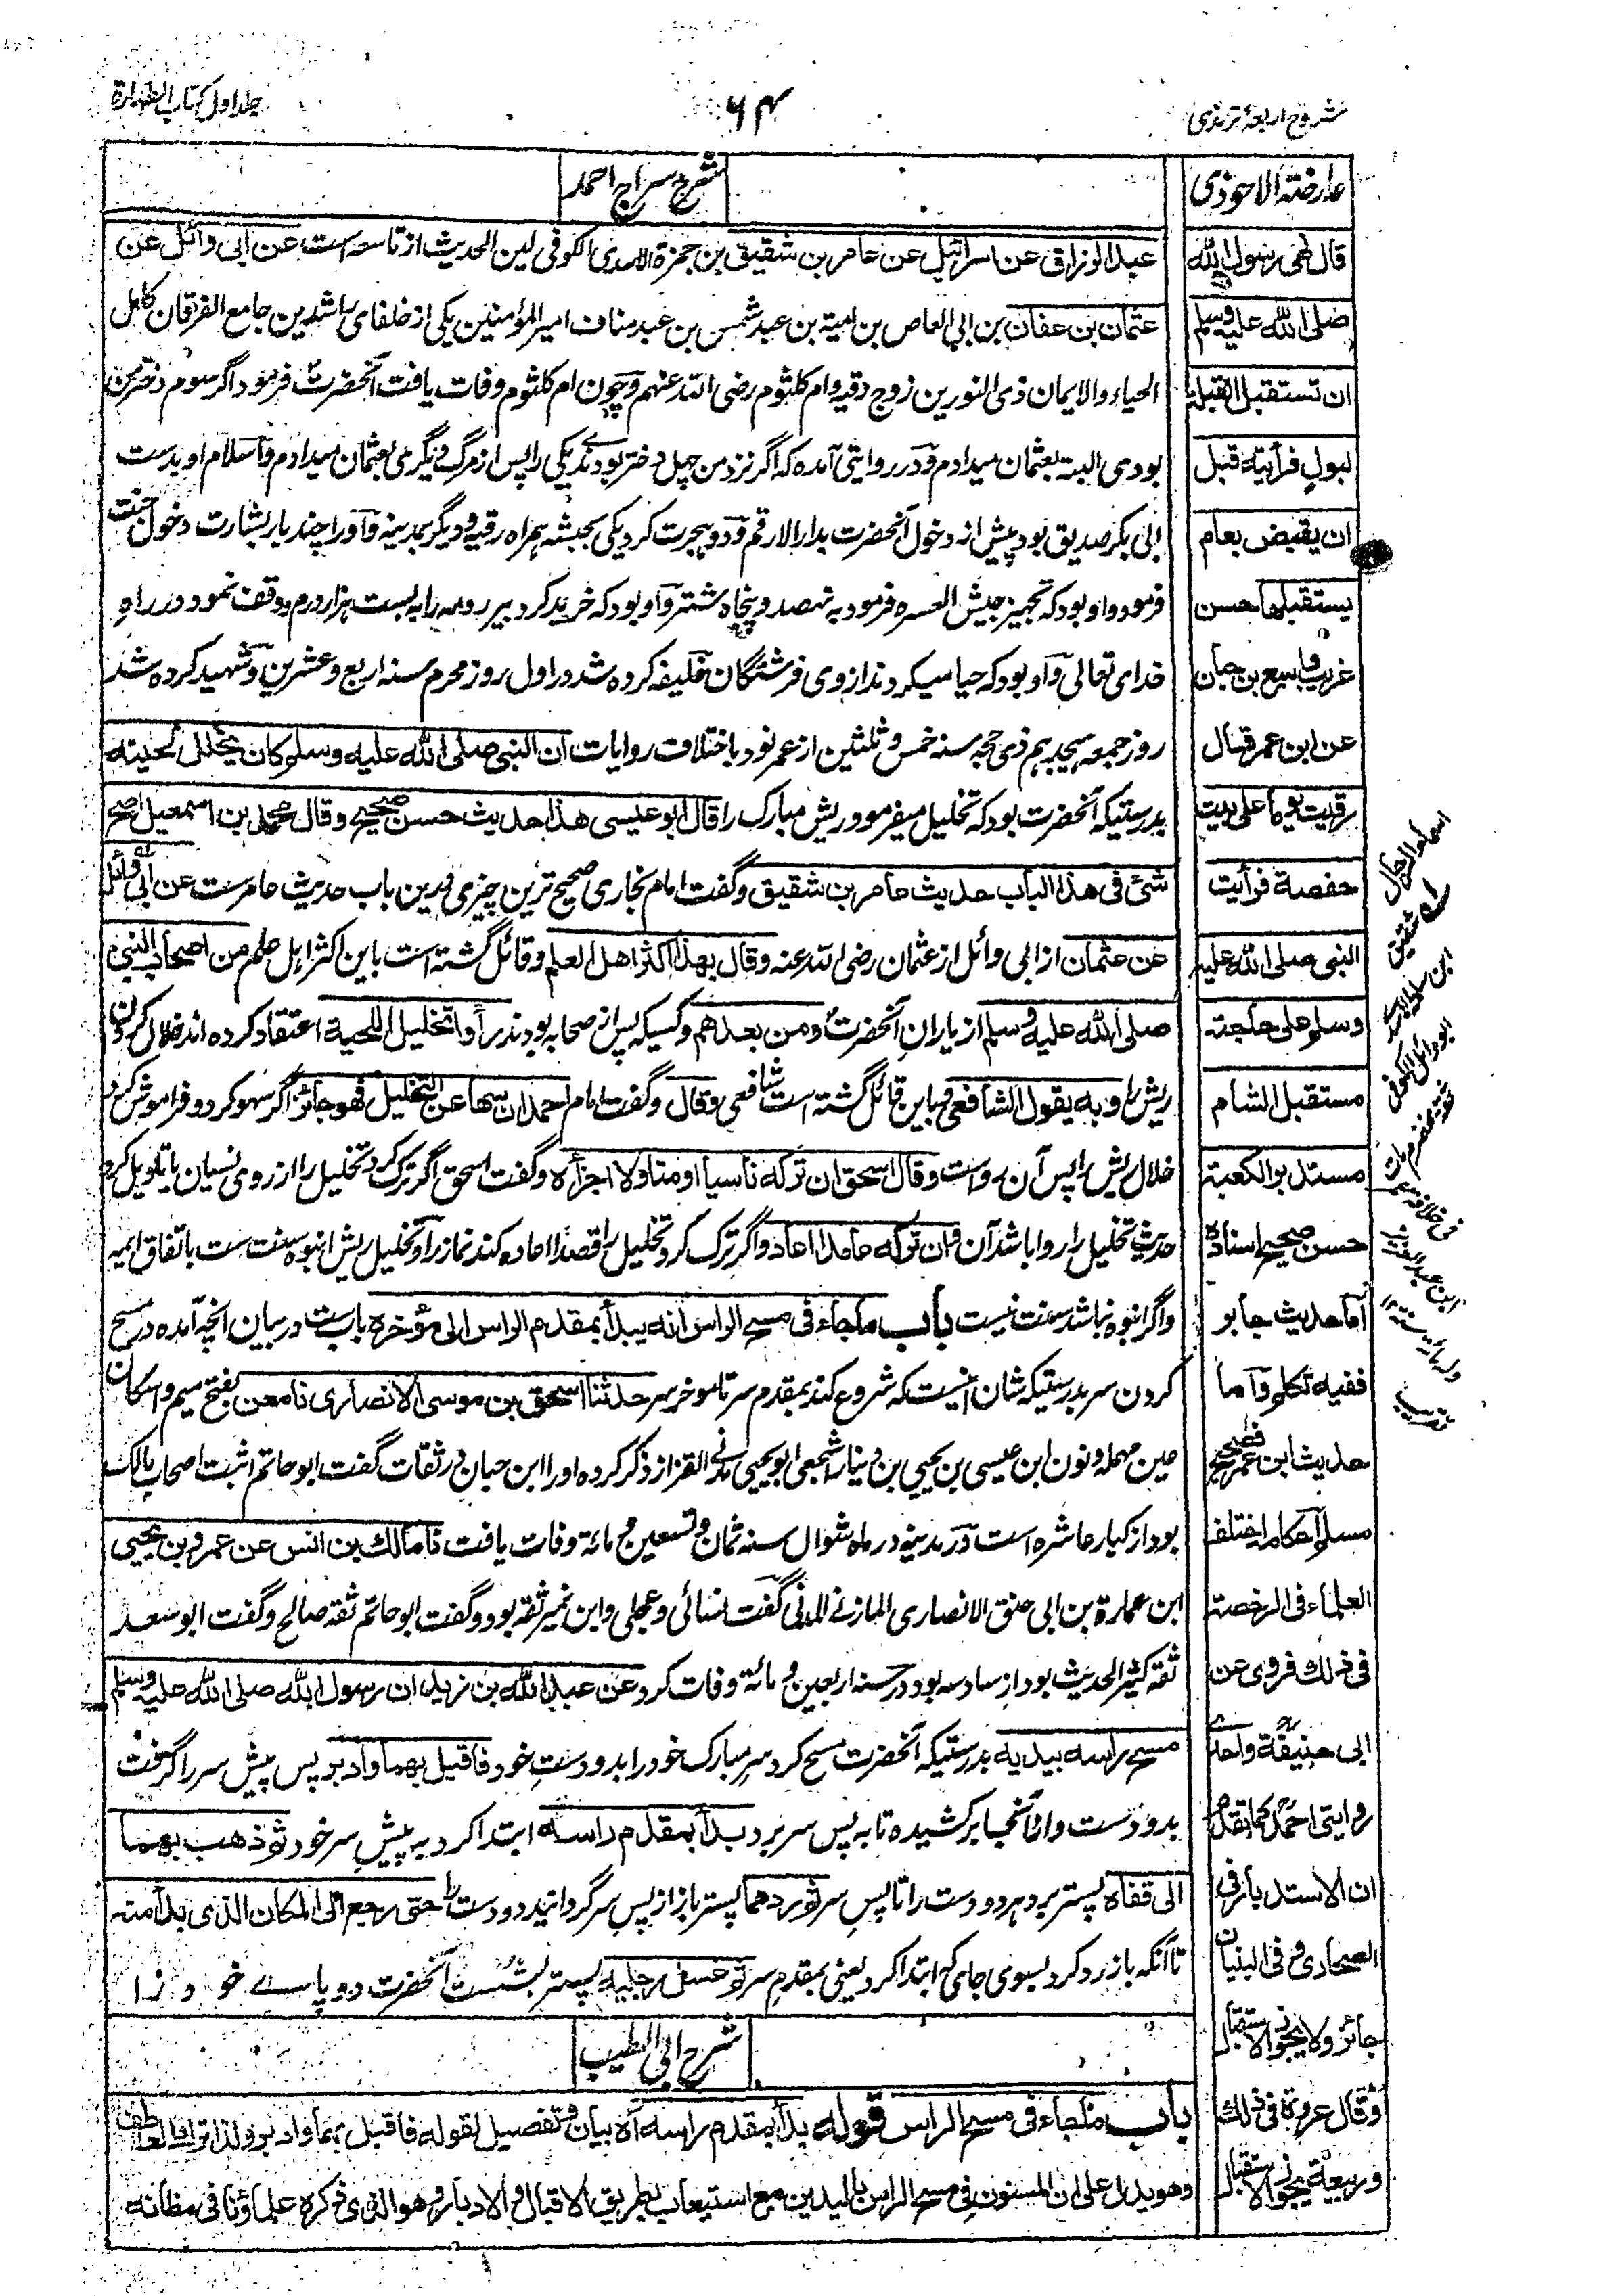 شروح اربعۀ ترمذی
۶۴
جلد اول کتاب الطهارة
عارضته الاحوذی
قال نهی رسول الله
صلی الله علیه وسلم
ان تستقبل القبلة
لبول فرأیته قبل
ان یقبض بعام
یستقبلها حسن
غریب
عن ابن عمر قال
رقیت یوما علی بیت
حفصة فرأیت
النبی صلی الله علیه
وسلم علی حاجته
مستقبل الشام
مستدبر الکعبة
حسن صحیح اسناده
أما حدیث جابر
ففیه تکلم وأما
حدیث ابن عمر فصحیح
مسلم احکامه اختلف
العلماء فی الرخصة
فی ذلك فروی عن
ابی حنیفة واحد
روایتی احمد کما تقدم
ان الاستدبار فی
الصحاری و فی البنیان
جائز ولا یجوز الاستقبال
وقال عروة فی ذلك
وربیعة یجوز الاستقبال
شرح سراج احمد
عبد الرزاق عن اسرائیل عن عامر بن شقیق بن جمزة الاسدی الکوفی لین الحدیث از تاسعه است عن ابی وائل عن
عثمان بن عفان بن ابی العاص بن امیة بن عبد شمس بن عبد مناف امیر المؤمنین یکی از خلفای راشدین جامع الفرقان کامل
الحیاء والایمان ذی النورین زوج رقیه وام کلثوم رضی الله عنهم وچون ام کلثوم وفات یافت آنحضرت فرمود اگر سوم دختر من
بودی البته بعثمان میدادم ودر روایتی آمده که اگر نزد من چهل دختر بودندی یکی را پس از مرگ دیگری بعثمان میدادم واسلام او بدست
ابی بکر صدیق بود پیش از دخول آنحضرت بدار الارقم ودو هجرت کرد یکی بحبشه همراه رقیه و دیگر بمدینه واورا چند بار بشارت دخول جنت
فرمود واو بود که تجهیز جیش العسره فرمود به نهصد و پنجاه شتر واو بود که خرید کرد بیر رومه را به بست هزار درم و وقف نمود در راه
خدای تعالی واو بود که حیا میکردند از وی فرشتگان خلیفه کرده شد در اول روز محرم سنه اربع و عشرین وشهید کرده شد
روز جمعه هیجدهم ذی حجه سنه خمس و ثلثین از عمر نود باختلاف روایات ان النبی صلی الله علیه وسلم کان یخلل لحیته
بدرستیکه آنحضرت بود که تخلیل میفرمود ریش مبارک را قال ابو عیسی هذا حدیث حسن صحیح وقال محمد بن اسمعیل اصح
شئ فی هذا الباب حدیث عامر بن شقیق وگفت امام بخاری صحیح ترین چیزی درین باب حدیث عامرست عن ابی وائل
عن عثمان از ابی وائل از عثمان رضی الله عنه وقال بهذا اکثر اهل العلم وقائل گشته است باین اکثر اهل علم من اصحاب النبی
صلی الله علیه وسلم از یاران آنحضرت ومن بعدهم وکسیکه پس از صحابه بودند رأوا تخلیل اللحیة اعتقاد کرده اند خلال کردن
ریش را وبه یقول الشافعی وباین قائل گشته است شافعی وقال وگفت امام احمد ان سها عن التخلیل فهو جائز اگر سهو کرد وفراموش کرد
خلال ریش را پس آن رواست وقال اسحق ان ترکه ناسیا او متاولا اجزأه وگفت اسحق اگر ترک کرد تخلیل را از روی نسیان یا تاویل کرد
حدیث تخلیل را روا باشد آن وان ترکه عامدا اعاد واگر ترک کرد تخلیل را قصدا اعاده کند نماز را وتخلیل ریش انبوه سنت ست باتفاق ایمه
واگر انبوه نباشد سنت نیست باب ماجاء فی مسح الراس انه یبدأ بمقدم الراس الی مؤخره بابست در بیان انچه آمده در مسح
کردن سر بدرستیکه شان اینست که شروع کند بمقدم سر تا موخر سر حدثنا اسحق بن موسی الانصاری نا معن بفتح میم واسکان
عین مهمله ونون ابن عیسی بن یحیی بن دینار اشجعی ابو یحیی مدنی القزاز ذکر کرده اورا ابن حبان در ثقات گفت ابو حاتم اثبت اصحاب مالک
بود از کبار عاشره است در مدینه در ماه شوال سنه ثمان وتسعین و مائة وفات یافت نا مالك بن انس عن عمرو بن یحیی
ابن عمارة بن ابی حسن الانصاری المازنی المدنی گفت نسائی وعجلی وابن نمیر ثقه بود وگفت ابو حاتم ثقه صالح وگفت ابو سعد
ثقه کثیر الحدیث بود از سادسه بود در سنه اربعین و مائة وفات کرد عن عبد الله بن زید ان رسول الله صلی الله علیه وسلم
مسح راسه بیدیه بدرستیکه آنحضرت مسح کرد سر مبارک خود را بدو دست خود فاقبل بهما وادبر پس پیش سر را گرفت
بدو دست وازانجا برکشیده تا به پس سر برد بدأ بمقدم راسه ابتدا کرد به پیش سر خود ثم ذهب بهما
الی قفاه پستر برد هر دو دست را تا پس سر ثم ردهما پستر باز از پس سر گردانید دو دست را حتی رجع الی المکان الذی بدأ منه
تا آنکه باز رد کرد بسوی جای که ابتدا کرد یعنی بمقدم سر ثم غسل رجلیه پستر بشست آنحضرت دو پاے خود را
شرح ابی الطیب
باب ماجاء فی مسح الراس قوله بدأ بمقدم راسه آه بیان وتفصیل لقوله فاقبل بهما وادبر ولذا ترك العاطف
وهو یدل علی ان المسنون فی مسح الراس بالیدین مع استیعاب بطریق الاقبال والادبار وهو الذی ذکره علماؤنا فی مظانه
اسماء الرجال
شقیق
ابن سلمة الاسدی
ابو وائل الکوفی
ثقة مخضرم مات
فی خلافة عمر
ابن عبد العزیز
وله مائة سنة
تقریب